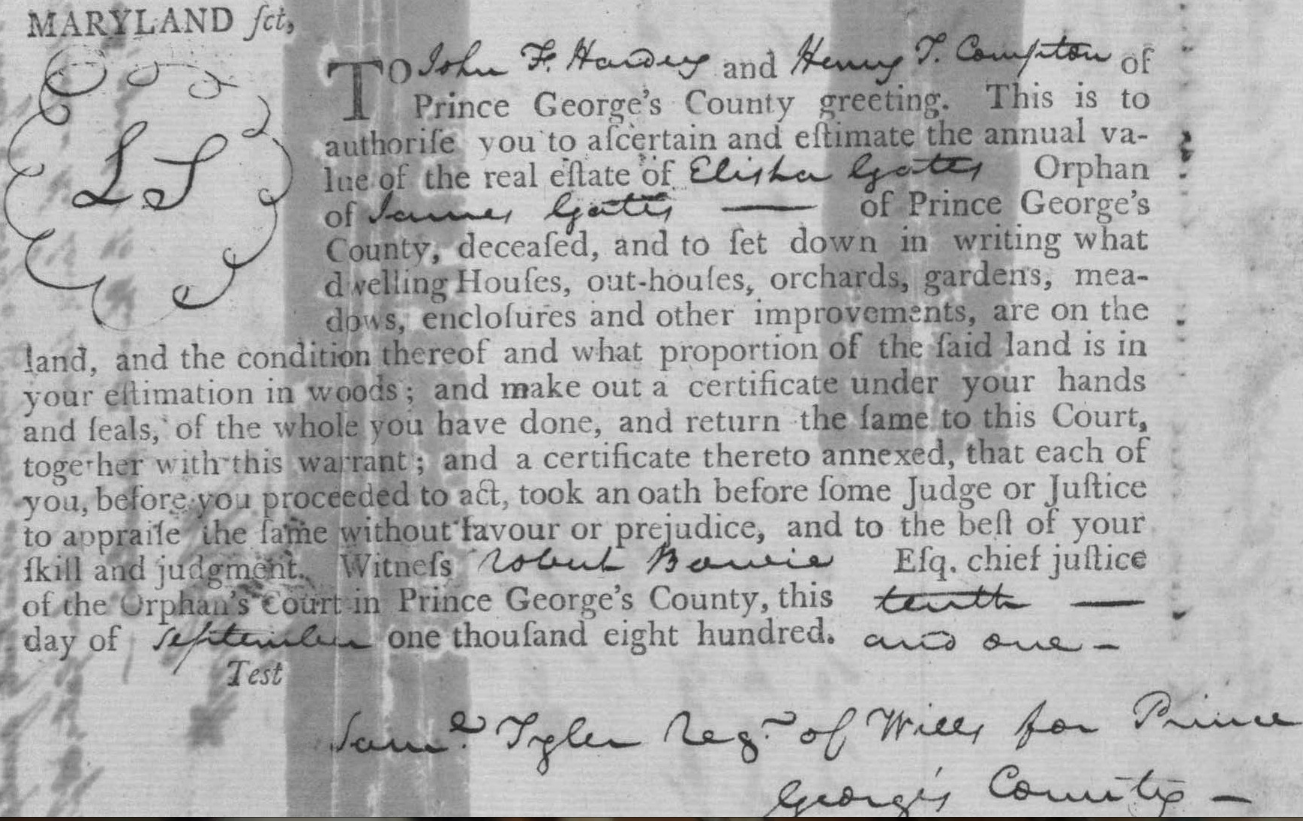 MARYLAND ſct,
LS
TO John F. Hardey and Henry T. Compton of
Prince George's County greeting. This is to
authoriſe you to aſcertain and eſtimate the annual va-
lue of the real eſtate of Elisha Gates Orphan
of James Gates — of Prince George's
County, deceaſed, and to ſet down in writing what
dwelling Houſes, out-houſes, orchards, gardens, mea-
dows, encloſures and other improvements, are on the
land, and the condition thereof and what proportion of the ſaid land is in
your eſtimation in woods; and make out a certificate under your hands
and ſeals, of the whole you have done, and return the ſame to this Court,
together with this warrant; and a certificate thereto annexed, that each of
you, before you proceeded to act, took an oath before ſome Judge or Juſtice
to appraiſe the ſame without favour or prejudice, and to the beſt of your
ſkill and judgment. Witneſs Robert Bowie Eſq. chief juſtice
of the Orphan's Court in Prince George's County, this tenth —
day of September one thouſand eight hundred. and one –
Test
Saml. Tyler Regr. of Wills for Prince
George's County –